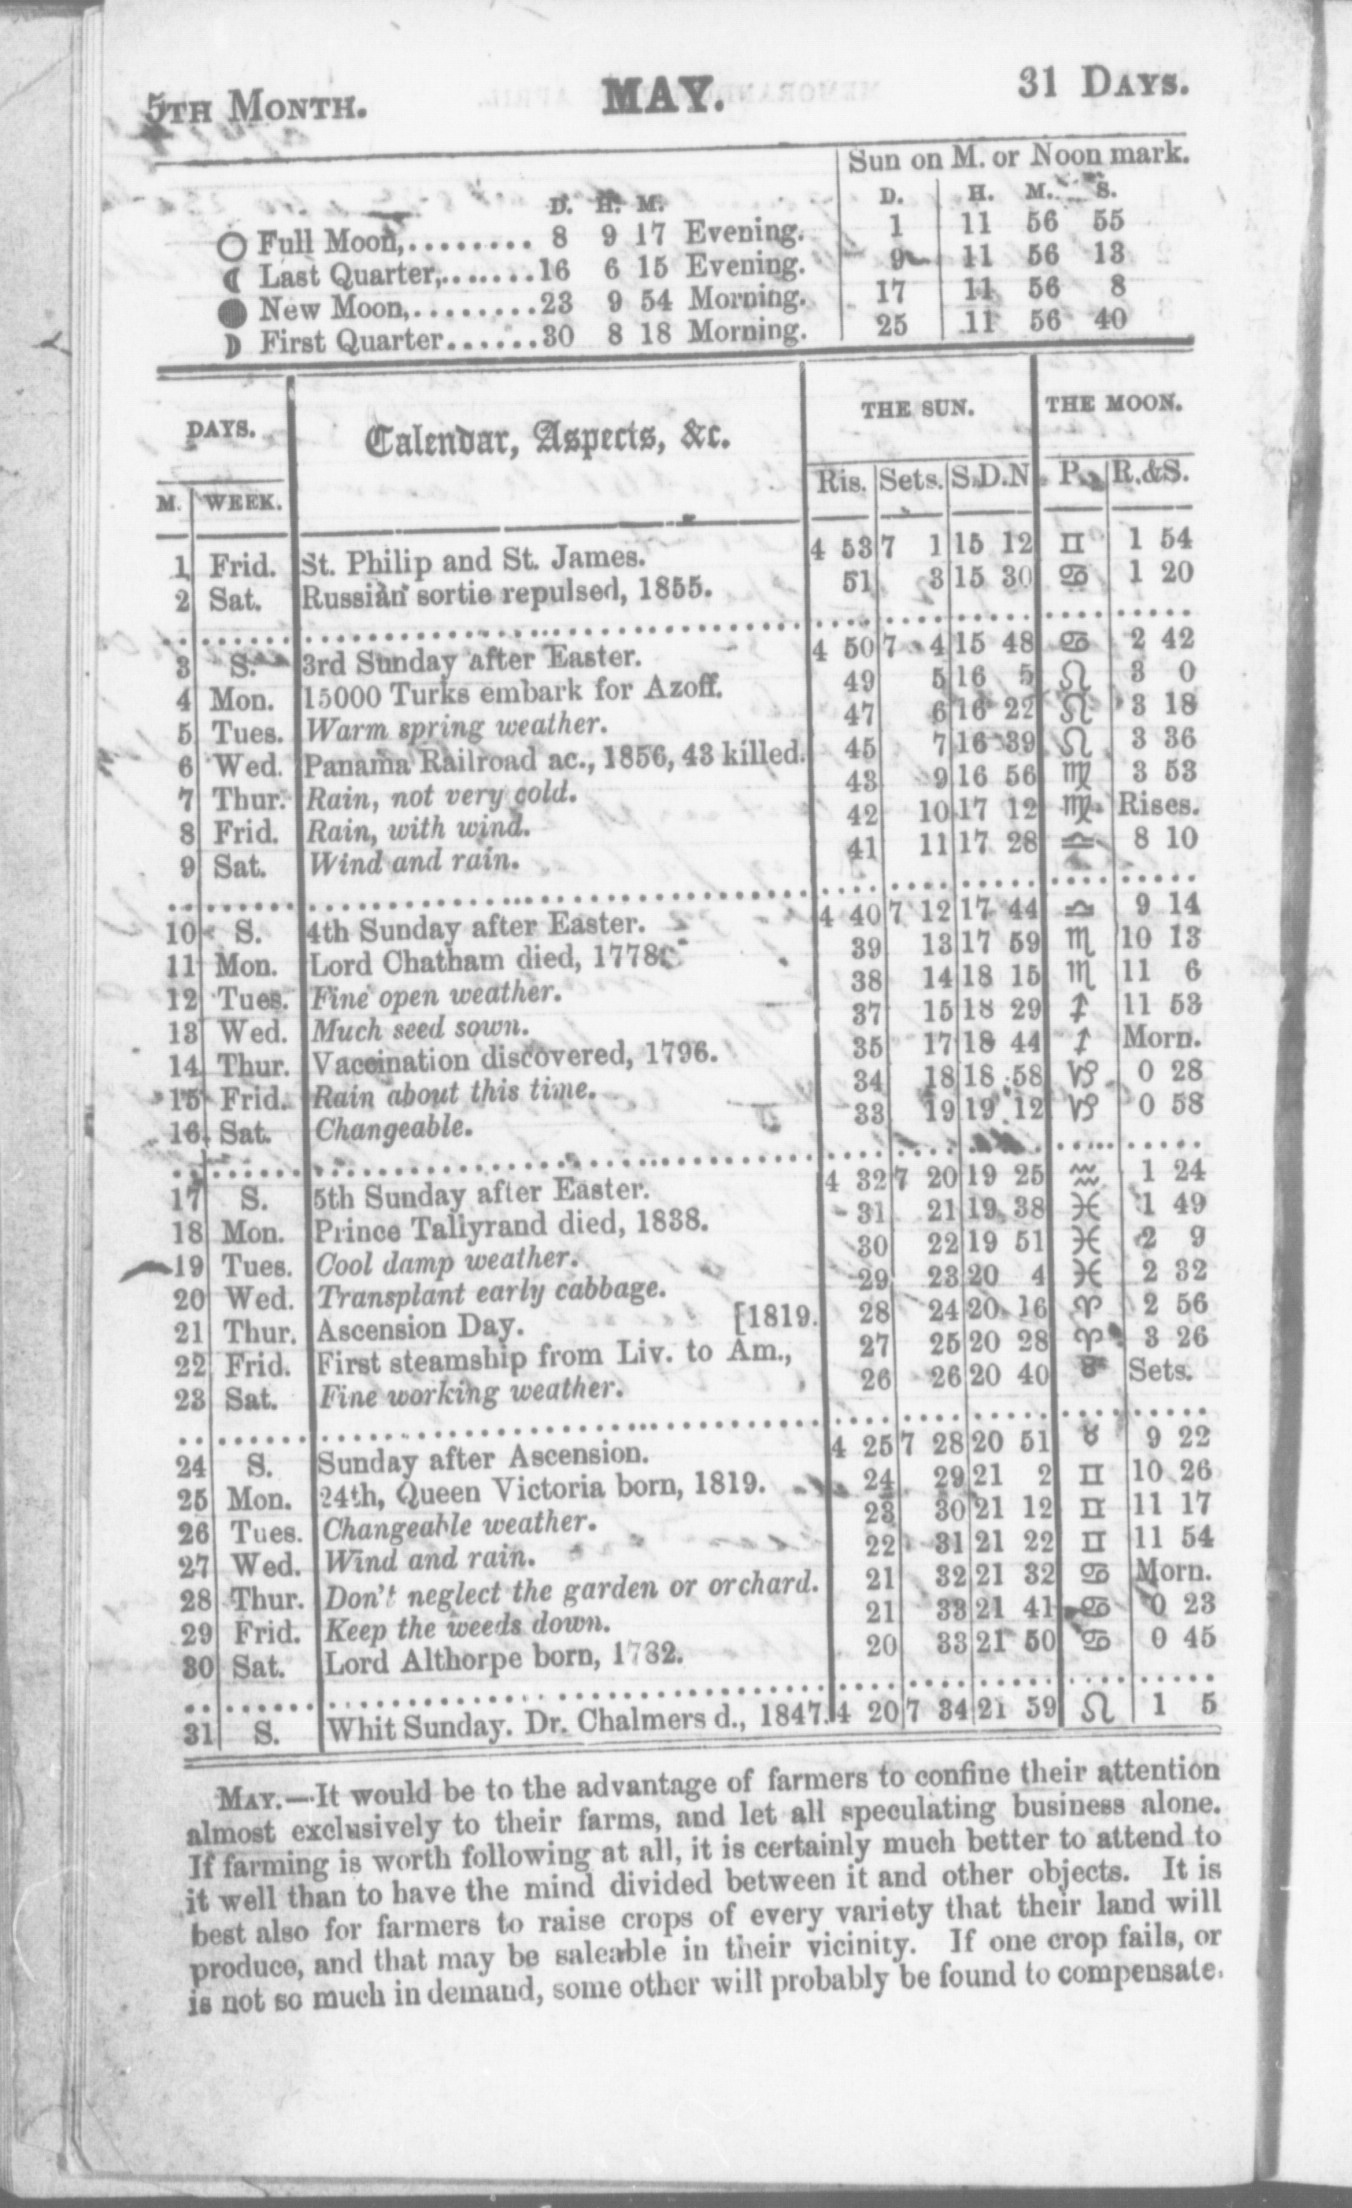 5TH MONTH. MAY. 31 DAYS.
Sun on M. or Noon mark.
D. H. M. D. H. M. S.
○ Full Moon,......... 8 9 17 Evening. 1 11 56 55
☾ Last Quarter,.......16 6 15 Evening. 9 11 56 13
● New Moon,.........23 9 54 Morning. 17 11 56 8
☽ First Quarter......30 8 18 Morning. 25 11 56 40
DAYS. Calendar, Aspects, &c. THE SUN. THE MOON.
M. WEEK. Ris. Sets. S.D.N. P. R.&S.
1 Frid. St. Philip and St. James. 4 53 7 1 15 12 ♊ 1 54
2 Sat. Russian sortie repulsed, 1855. 51 3 15 30 ♋ 1 20
3 S. 3rd Sunday after Easter. 4 50 7 4 15 48 ♋ 2 42
4 Mon. 15000 Turks embark for Azoff. 49 5 16 5 ♌ 3 0
5 Tues. Warm spring weather. 47 6 16 22 ♌ 3 18
6 Wed. Panama Railroad ac., 1856, 43 killed. 45 7 16 39 ♌ 3 36
7 Thur. Rain, not very cold. 43 9 16 56 ♍ 3 53
8 Frid. Rain, with wind. 42 10 17 12 ♍ Rises.
9 Sat. Wind and rain. 41 11 17 28 ♎ 8 10
10 S. 4th Sunday after Easter. 4 40 7 12 17 44 ♎ 9 14
11 Mon. Lord Chatham died, 1778. 39 13 17 59 ♏ 10 13
12 Tues. Fine open weather. 38 14 18 15 ♏ 11 6
13 Wed. Much seed sown. 37 15 18 29 ♐ 11 53
14 Thur. Vaccination discovered, 1796. 35 17 18 44 ♐ Morn.
15 Frid. Rain about this time. 34 18 18 58 ♑ 0 28
16 Sat. Changeable. 33 19 19 12 ♑ 0 58
17 S. 5th Sunday after Easter. 4 32 7 20 19 25 ♒ 1 24
18 Mon. Prince Tallyrand died, 1838. 31 21 19 38 ♓ 1 49
19 Tues. Cool damp weather. 30 22 19 51 ♓ 2 9
20 Wed. Transplant early cabbage. 29 23 20 4 ♓ 2 32
21 Thur. Ascension Day. [1819. 28 24 20 16 ♈ 2 56
22 Frid. First steamship from Liv. to Am., 27 25 20 28 ♈ 3 26
23 Sat. Fine working weather. 26 26 20 40 ♉ Sets.
24 S. Sunday after Ascension. 4 25 7 28 20 51 ♉ 9 22
25 Mon. 24th, Queen Victoria born, 1819. 24 29 21 2 ♊ 10 26
26 Tues. Changeable weather. 23 30 21 12 ♊ 11 17
27 Wed. Wind and rain. 22 31 21 22 ♊ 11 54
28 Thur. Don't neglect the garden or orchard. 21 32 21 32 ♋ Morn.
29 Frid. Keep the weeds down. 21 33 21 41 ♋ 0 23
30 Sat. Lord Althorpe born, 1782. 20 33 21 50 ♋ 0 45
31 S. Whit Sunday. Dr. Chalmers d., 1847. 4 20 7 34 21 59 ♌ 1 5
MAY.—It would be to the advantage of farmers to confine their attention
almost exclusively to their farms, and let all speculating business alone.
If farming is worth following at all, it is certainly much better to attend to
it well than to have the mind divided between it and other objects. It is
best also for farmers to raise crops of every variety that their land will
produce, and that may be saleable in their vicinity. If one crop fails, or
is not so much in demand, some other will probably be found to compensate.